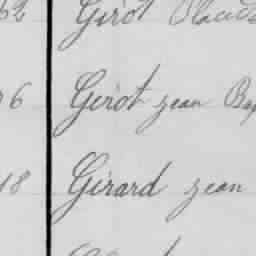 62 Girot Placide
6 Girot jean Bap
18 Girard jean